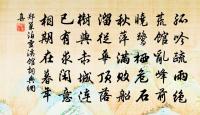 孤吟疏雨絕
荒館亂峰前
曉鷺棲危石
秋萍滿敗船
溜從華頂落
樹與赤城連
已有求閑意
相期在暮年
鄭巢泊靈溪館詞典網